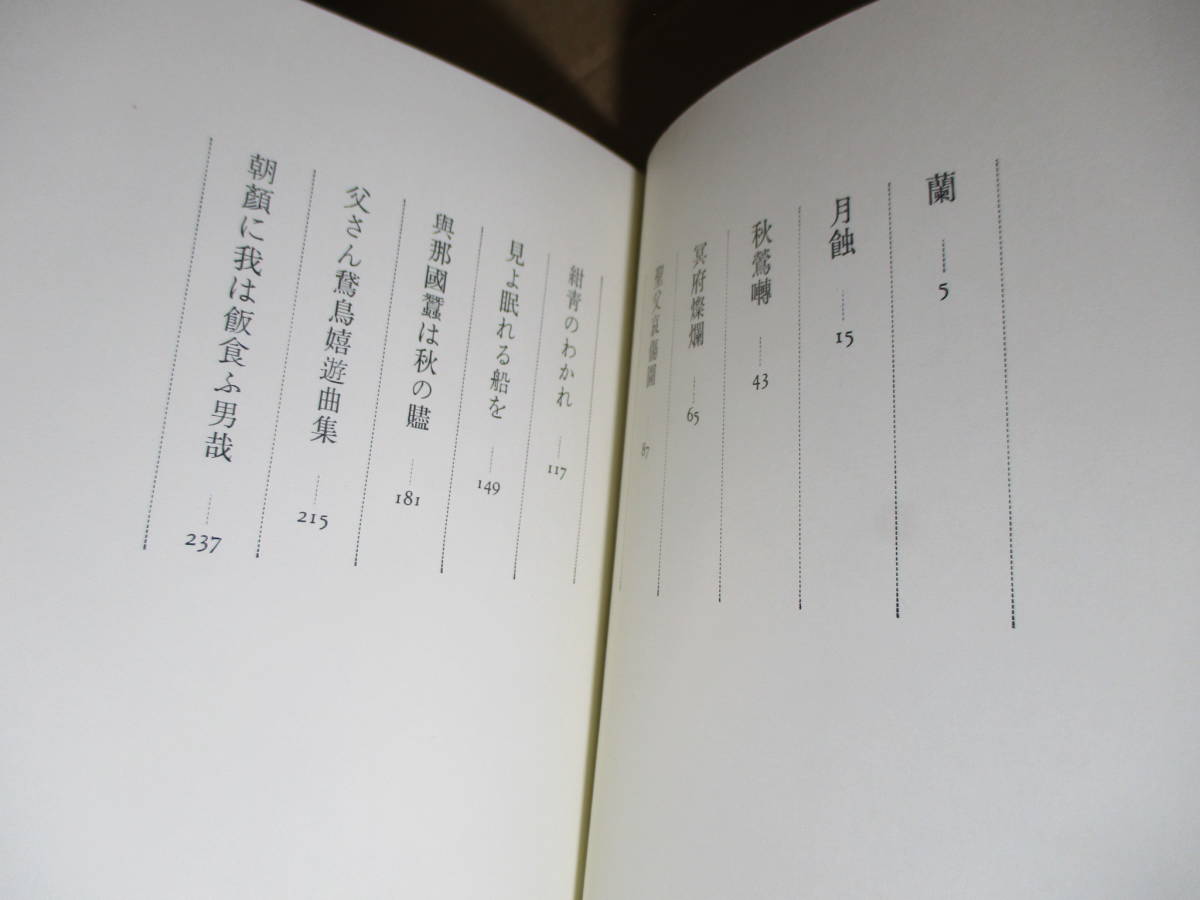 蘭 …… 5
月蝕 …… 15
秋鶯囀 …… 43
冥府燦爛 …… 65
聖父哀傷圖 …… 87
紺青のわかれ …… 117
見よ眠れる船を …… 149
與那國蠶は秋の贐 …… 181
父さん鵞鳥嬉遊曲集 …… 215
朝顏に我は飯食ふ男哉 …… 237